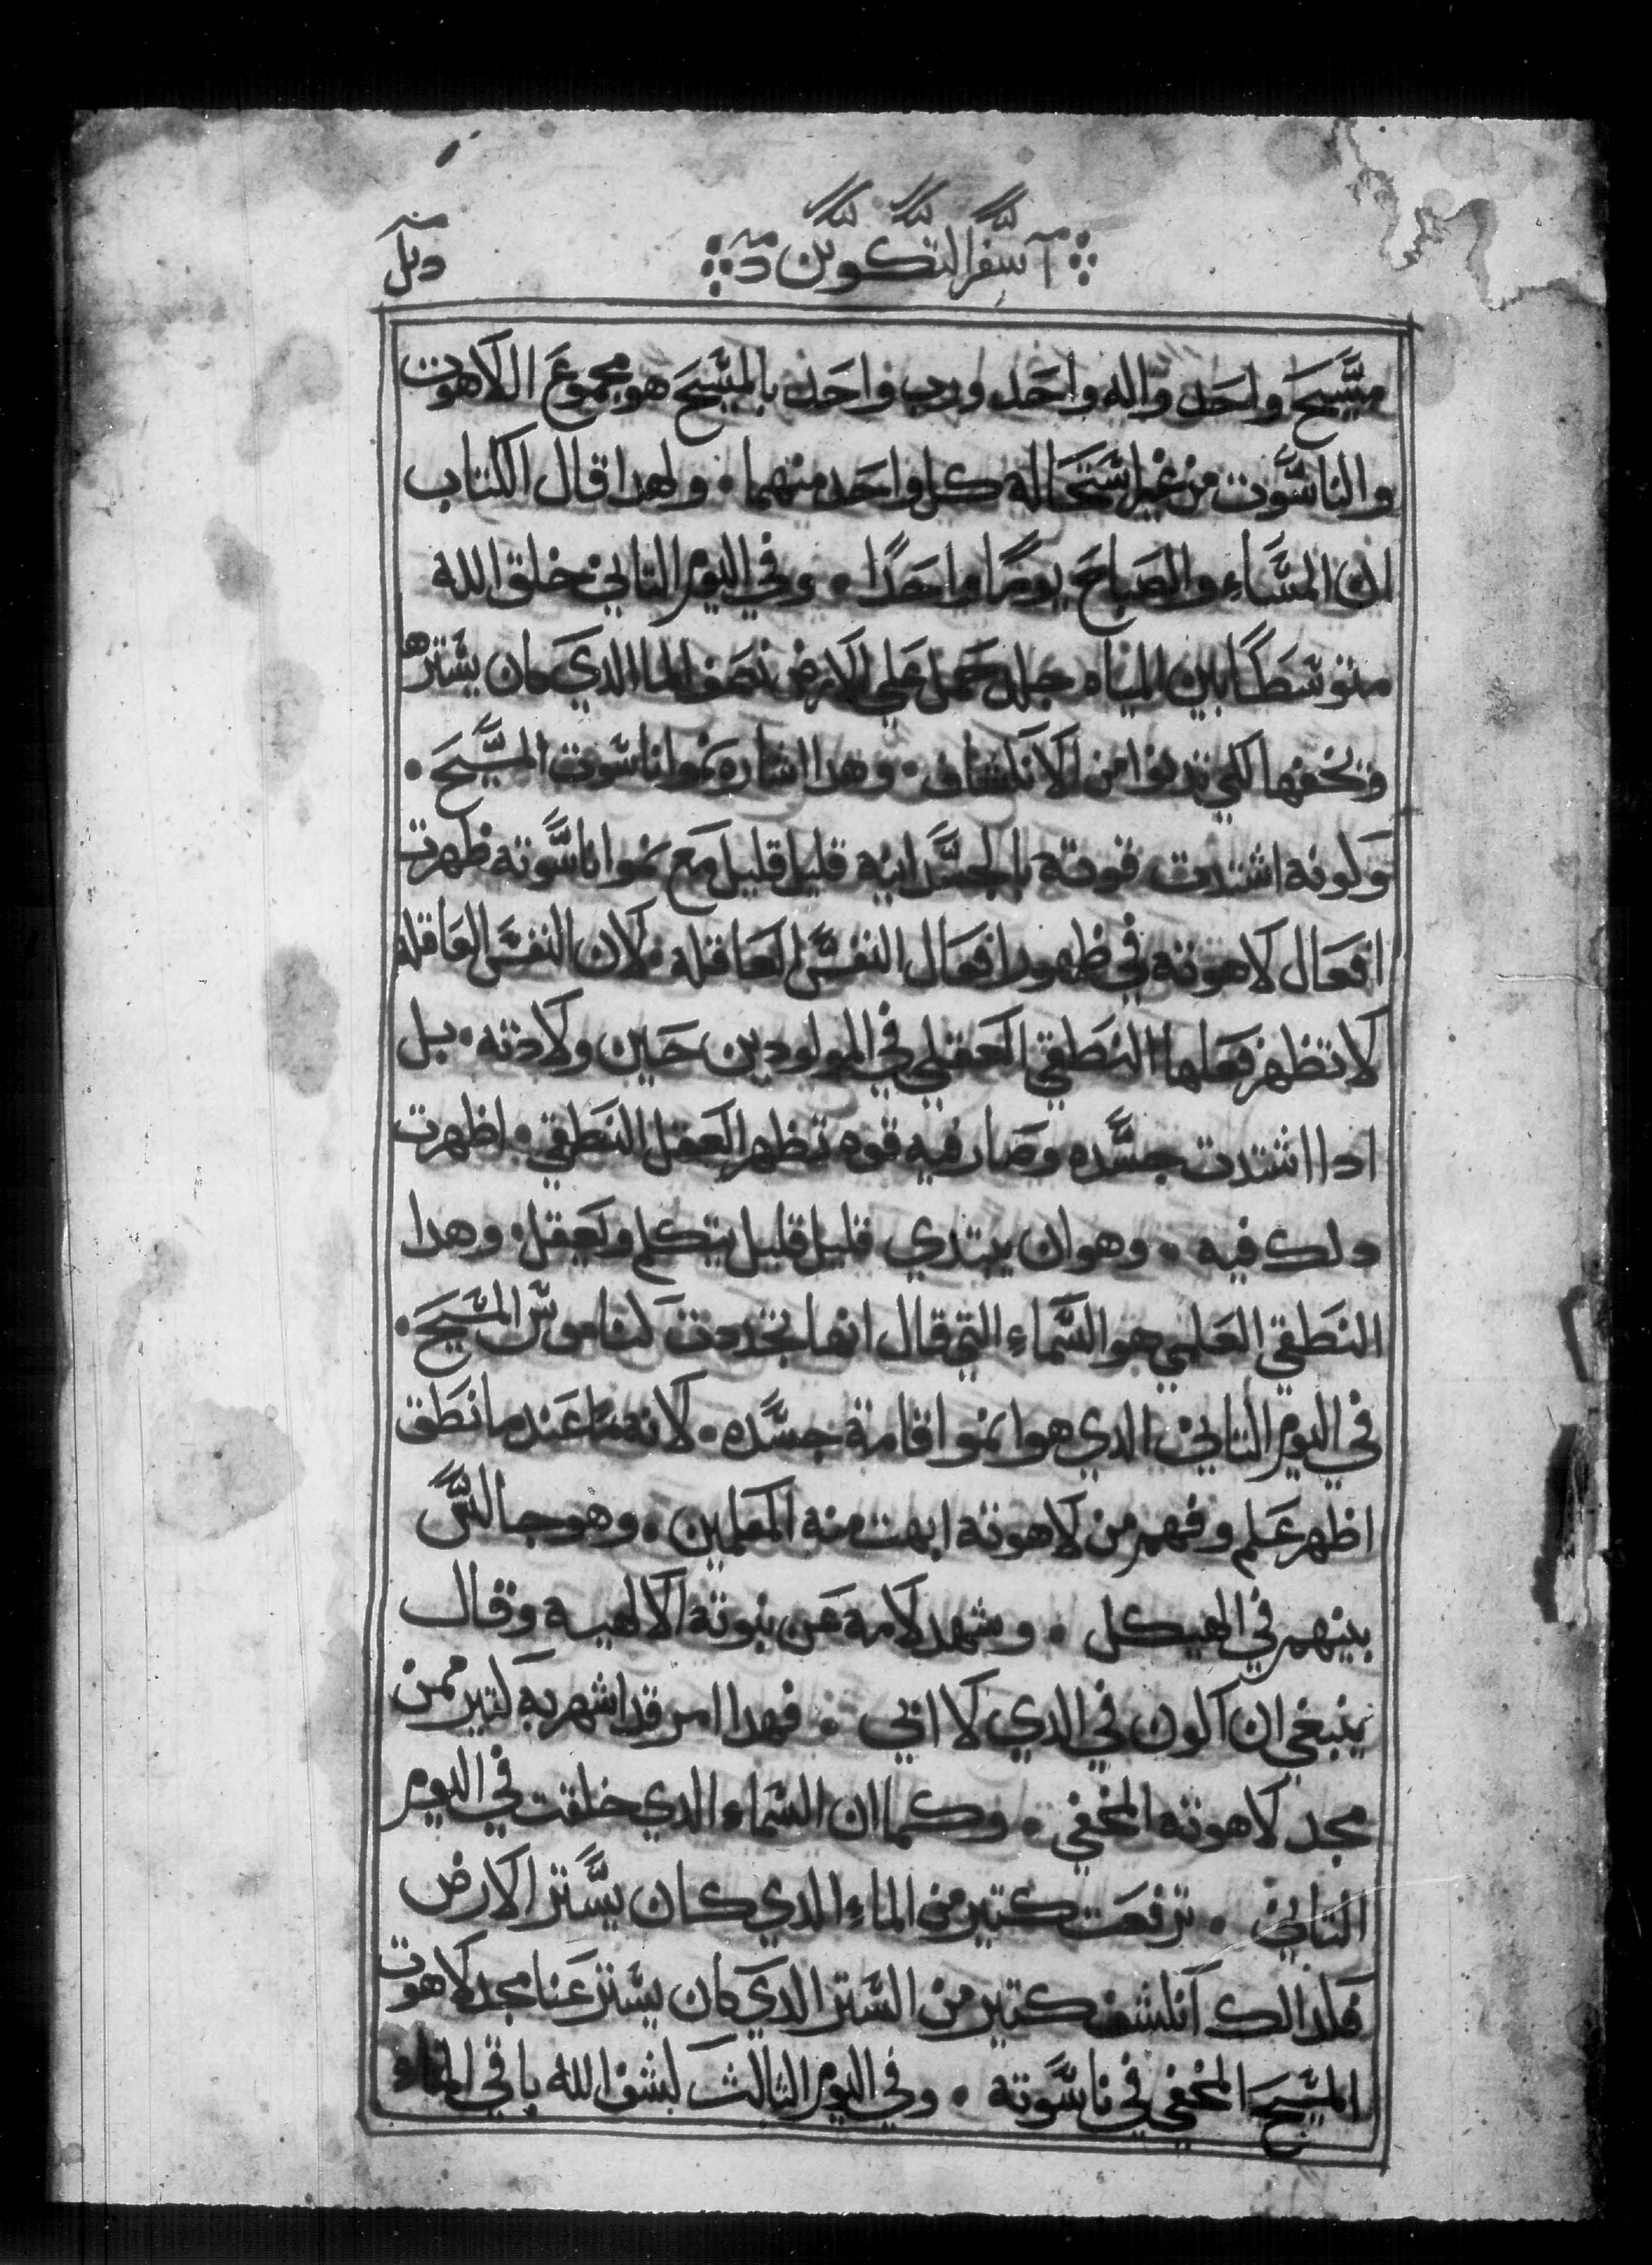 سفر التكوين
مسيح واحد واله واحد ورب واحد بالمسيح هو مجموع اللاهوت
والناسوت من غير استحاله كل واحد منهما ٠ ولهدا قال الكتاب
ان المساء والصباح يومًا واحدًا ٠ وفي اليوم التاني خلق الله
متوسطًا بين المياه جلد حمل علي الارض نصف الما الدي كان يسترها
وتخفها لكي تدنوا من الانكشاف ٠ وهدا اشاره نموا ناسوت المسيح ٠
وكونه اشتدت قوته بالجسدانيه قليل قليل مع نموا ناسوته ظهرت
افعال لاهوته في ظهور افعال النفس العاقله ٠ لان النفس العاقله
لا تظهر فعلها النطقي العقلي في المولودين حين ولادته ٠ بل
ادا اشتدت جسده وصار فيه قوه تظهر العقل النطقي ٠ اظهرت
دلك فيه ٠ وهو ان يبتدي قليل قليل يتكلم ويعقل ٠ وهدا
النطقي العلمي هو السماء التي قال انها تجددت لناموس المسيح ٠
في اليوم التاني الدي هوا نموا قامة جسده ٠ لانه عندما نطق
اظهر علم وفهم من لاهوته ابهت منه المعلمين ٠ وهو جالس
بينهم في الهيكل ٠ وشهد لامه عن بنوته الالهيه وقال
ينبغي ان اكون في الدي لابي ٠ فهدا امر قد اشهر به كتير من
مجد لاهوته المخفي ٠ وكما ان السماء الدي خلقت في اليوم
التاني ٠ ترفعت كتير من الماء الدي كان يستر الارض
فلدالك انكشف كتير من الستر الدي كان يستر عنا مجد لاهوت
المسيح المخفي في ناسوته ٠ وفي اليوم التالت كشف الله باقي الماء